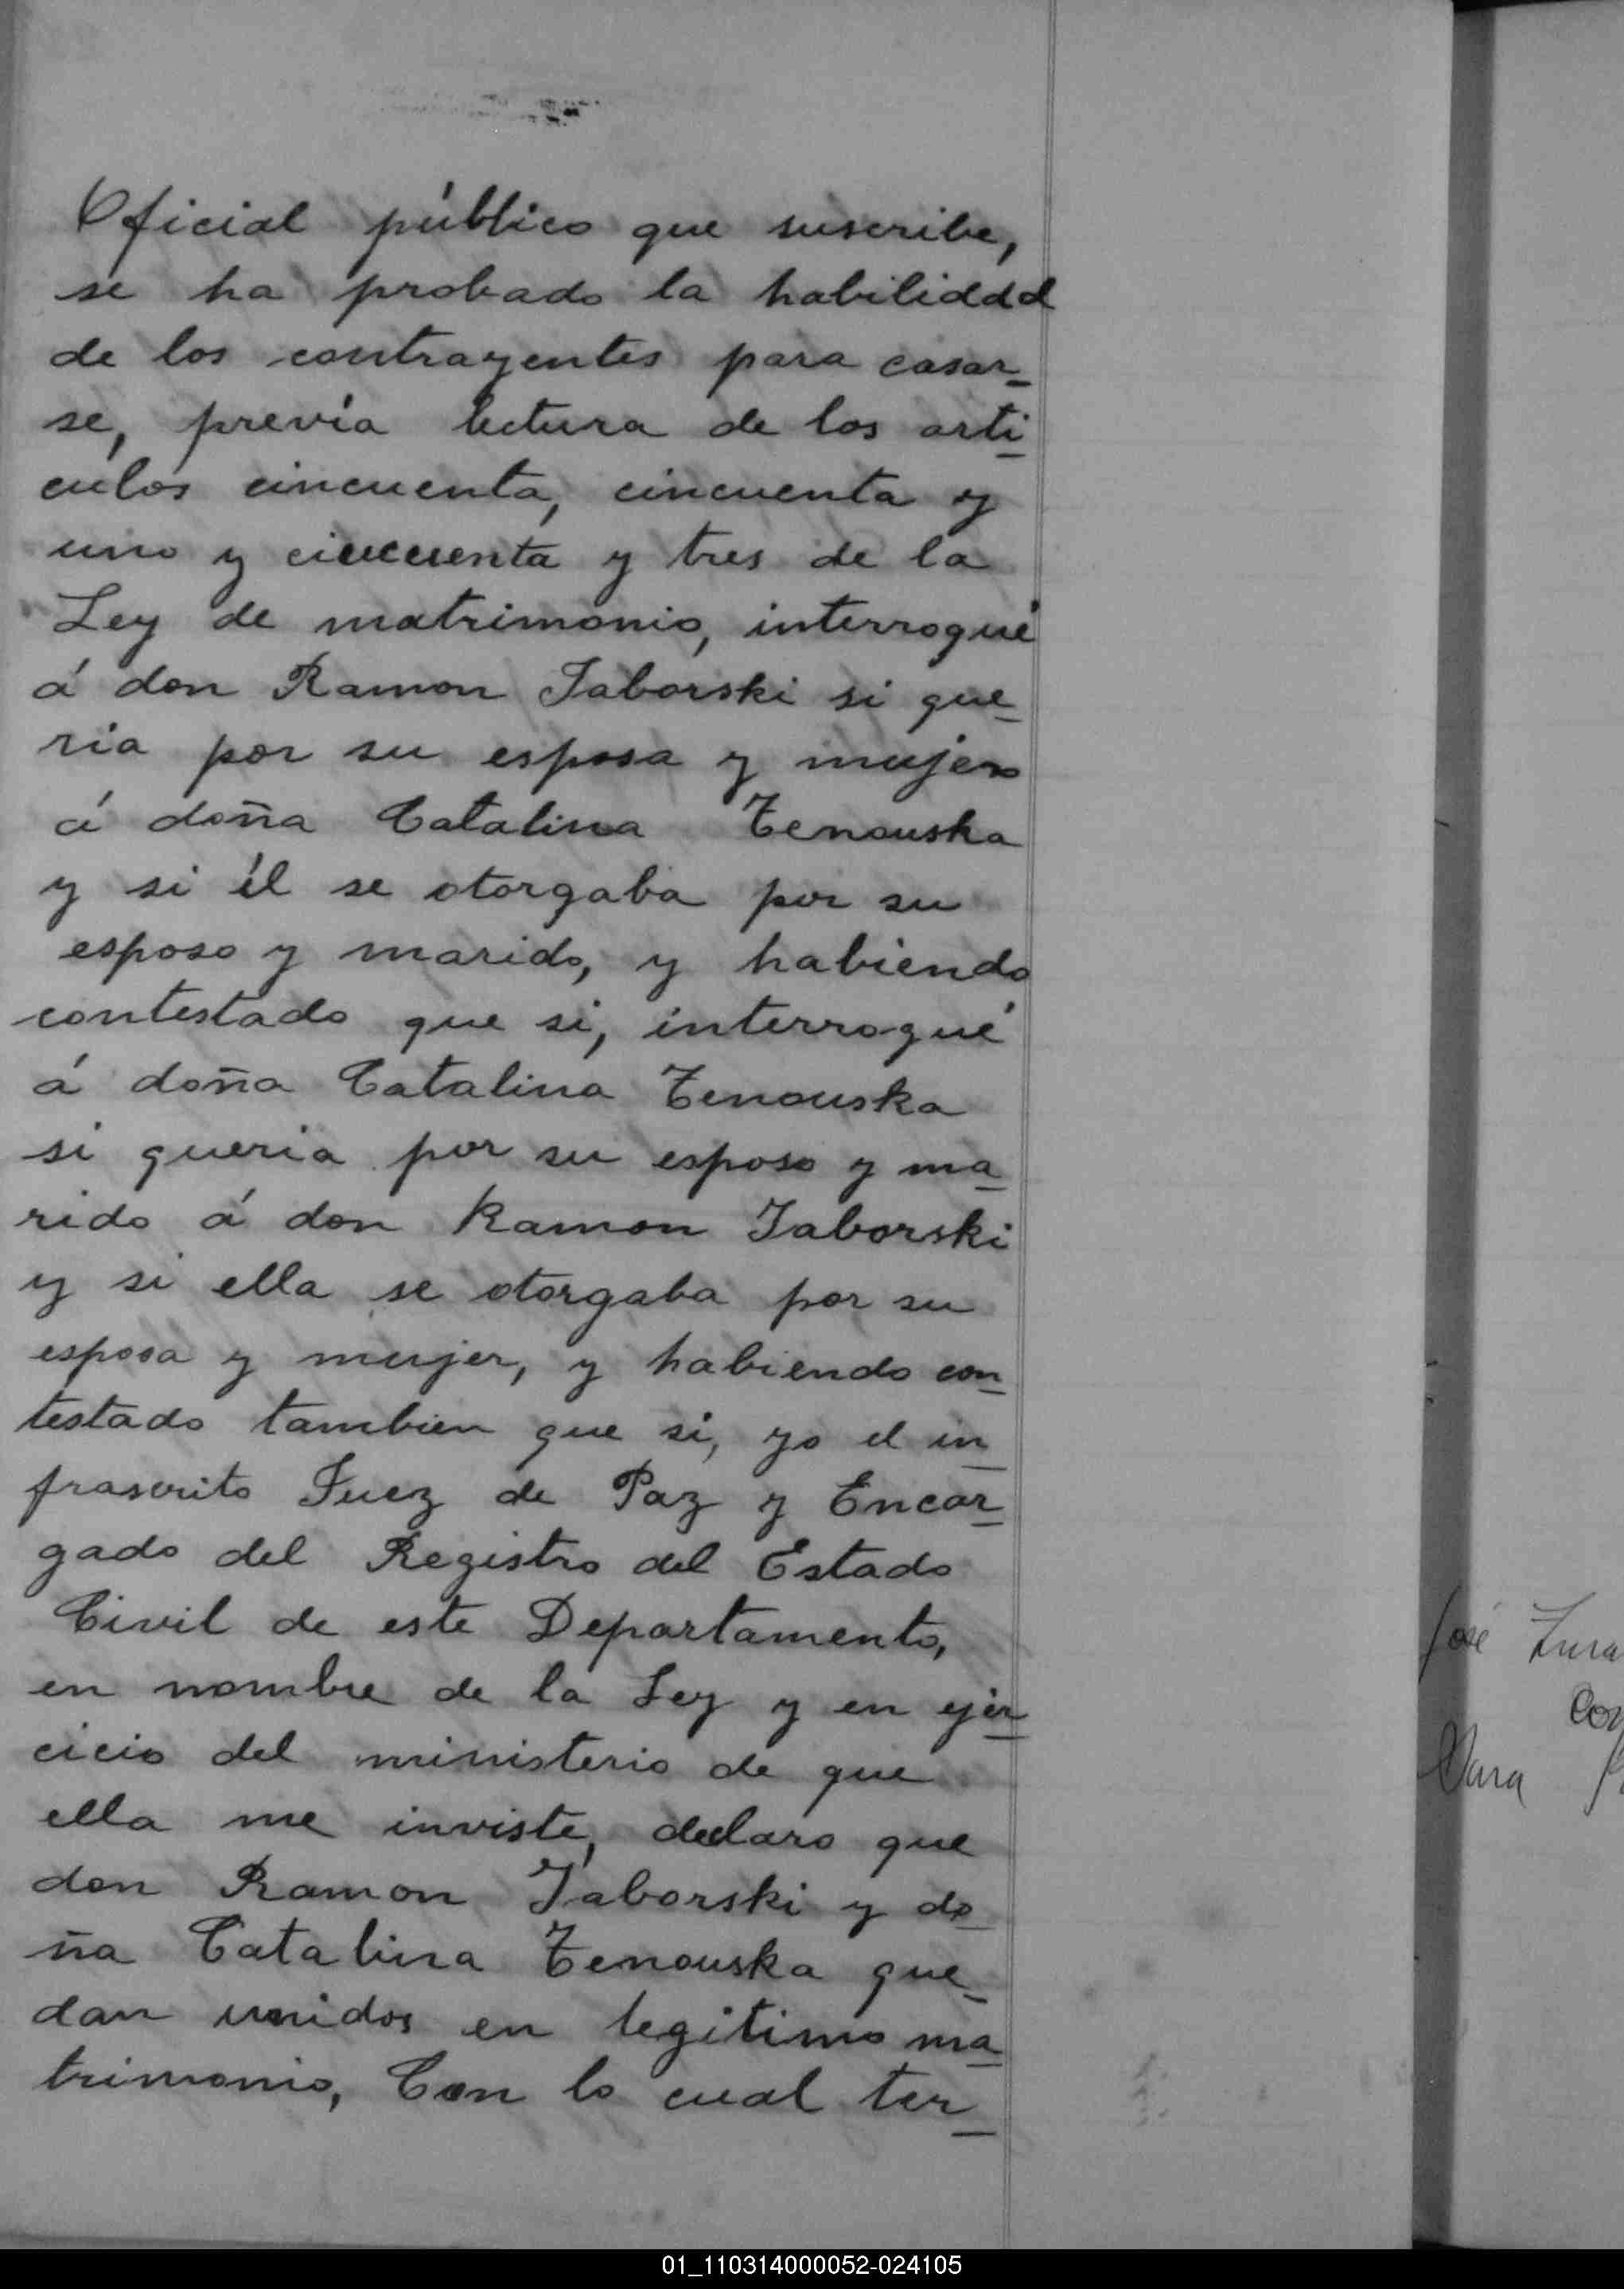 Oficial público que suscribe,
se ha probado la habilidad
de los contrayentes para casar-
se, prévia lectura de los arti-
culos cincuenta, cincuenta y
uno y cincuenta y tres de la
Ley de matrimonio, interrogué
á don Ramon Jaborski si que-
ria por su esposa y mujer
á doña Catalina Tenouska
y si él se otorgaba por su
esposo y marido, y habiendo
contestado que si, interrogué
á doña Catalina Tenouska
si queria por su esposo y ma-
rido á don Ramon Jaborski
y si ella se otorgaba por su
esposa y mujer, y habiendo con-
testado tambien que si, yo el in-
frascrito Juez de Paz y Encar-
gado del Registro del Estado
Civil de este Departamento,
en nombre de la Ley y en ejer-
cicio del ministerio de que
ella me inviste, declaro que
don Ramon Jaborski y do-
ña Catalina Tenouska que-
dan unidos en legitimo ma-
trimonio, Con lo cual ter-
José
Sara
01_110314000052-024105